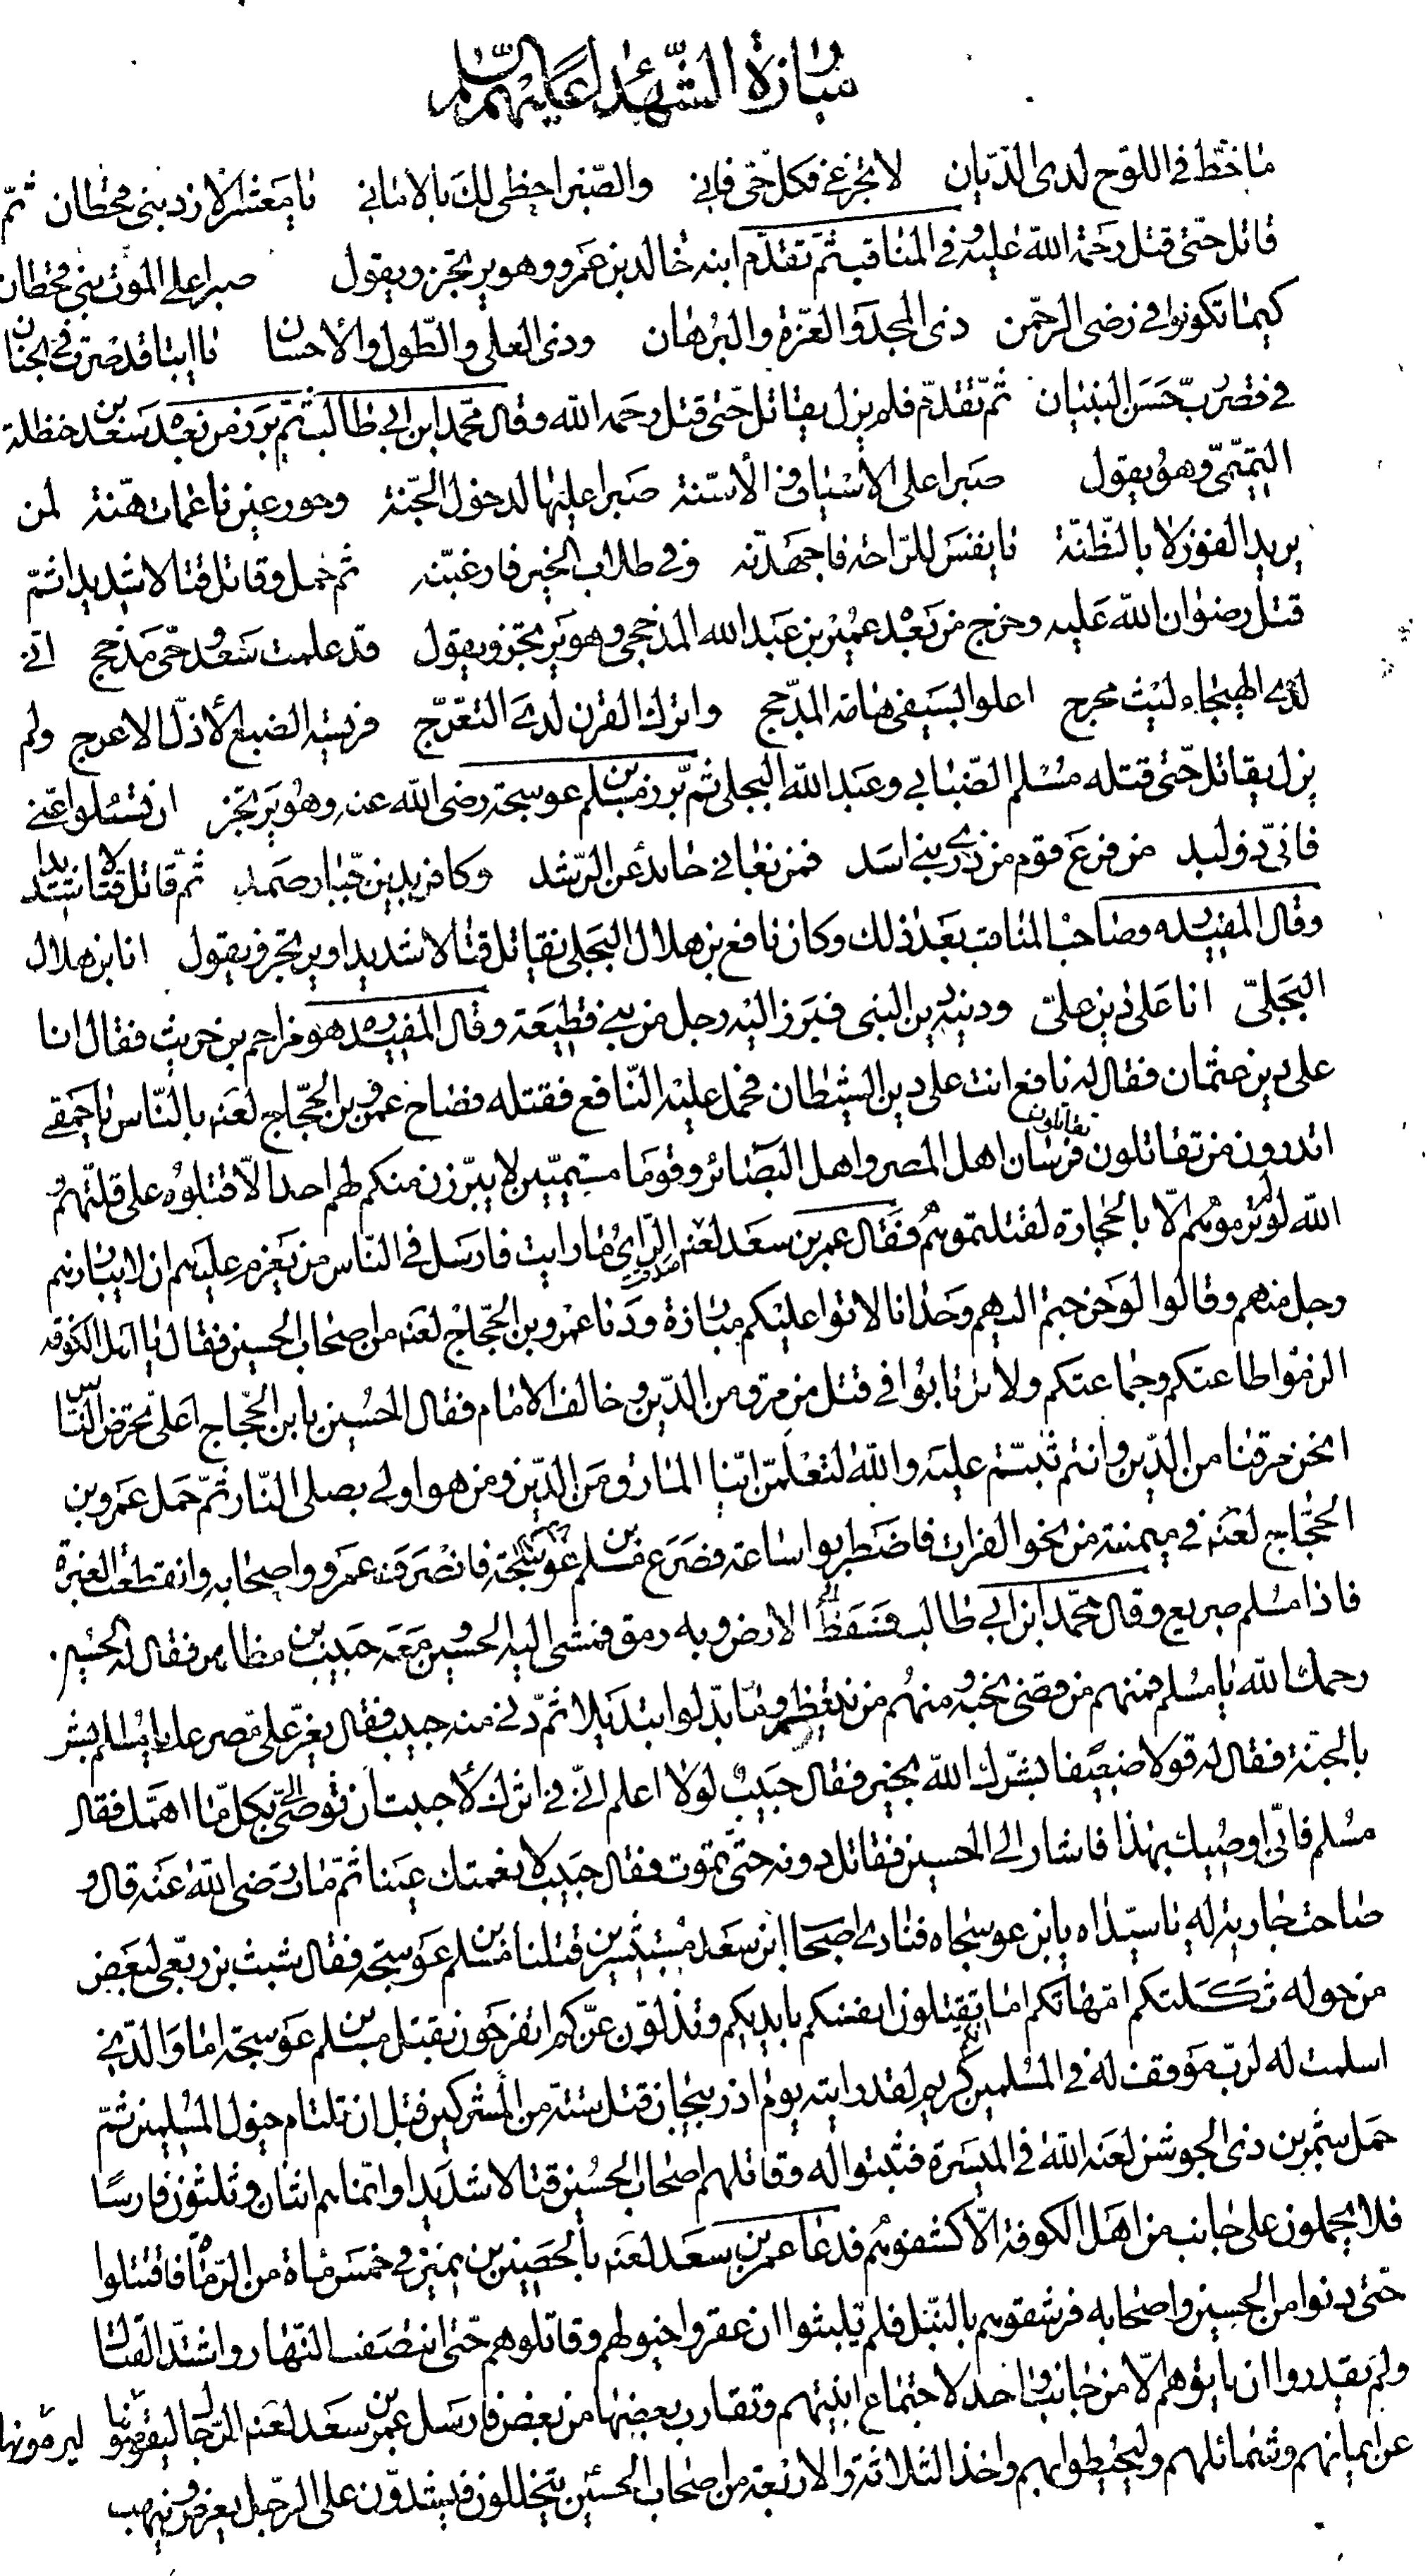 مبارزة الشهداء عليهم السلام
ما خطّ في اللوح لدى الدّيّان لا تجزعي فكلّ حيّ فاني والصّبر احظى لك بالاماني يا معشر الازد بني قحطان ثمّ
قاتل حتّى قتل رحمة الله عليه وفي المناقب ثمّ تقدّم ابنه خالد بن عمرو وهو يرتجز ويقول صبرا على الموت بني قحطان
كيما تكونوا في رضى الرحمن ذي المجد والعزّة والبرهان وذي العلى والطّول والاحسان يا ابتا قد صرت في الجنان
في قصر ربّ حسن البنيان ثمّ تقدّم فلم يزل يقاتل حتّى قتل رحمه الله وقال محمّد ابن ابي طالب ثمّ برز من بعده سعد بن حنظلة
التميميّ وهو يقول صبرا على الاسياف والأسنّة صبرا عليها لدخول الجنّة وحور عين ناعمات هنّة لمن
يريد الفوز لا بالظّنّة يا نفس للرّاحة فاجهدنّه وفي طلاب الخير فارغبنّه ثم حمل وقاتل قتالا شديدا ثمّ
قتل رضوان الله عليه وخرج من بعده عمير بن عبد الله المذحجي وهو يرتجز ويقول قد علمت سعد وحيّ مذحج انّي
لدى الهيجاء ليث محرج اعلو بسيفي هامة المدجّج واترك القرن لدى التعرّج فريسة الضبع الأذلّ الاعرج ولم
يزل يقاتل حتّى قتله مسلم الضّبابي وعبد الله البجلي ثمّ برز مسلم بن عوسجة رضي الله عنه وهو يرتجز ان تسئلوا عنّي
فانّي ذو لبد من فرع قوم من ذرى بني اسد فمن بغاني حائد عن الرّشد وكافر بدين جبّار صمد ثمّ قاتل قتالا شديدا
وقال المفيد ره وصاحب المناقب بعد ذلك وكان نافع بن هلال البجلي يقاتل قتالا شديدا ويرتجز ويقول انا بن هلال
البجليّ انا على دين عليّ ودينه دين النبي فبرز اليه رجل من بني قطيعة وقال المفيد ره هو مزاحم بن حريث فقال انا
على دين عثمان فقال له نافع انت على دين الشيطان فحمل عليه النّافع فقتله فصاح عمرو بن الحجّاج لعنه بالنّاس يا حمقى
اتدرون من تقاتلون تقاتلون فرسان اهل المصر واهل البصائر وقوما مستميتين لا يبرزن منكم لهم احد الّا قتلوه على قلّتهم و
الله لو لم ترموهم الّا بالحجارة لقتلتموهم فقال عمر بن سعد لعنه صدقت الرّاي ما رايت فارسل في النّاس من يعزم عليهم ان لا يبارزهم
رجل منهم وقالوا لو خرجتم اليهم وحدانا لاتوا عليكم مبارزة ودنا عمرو بن الحجّاج لعنه من اصحاب الحسين فقال يا اهل الكوفة
الزموا طاعتكم وجماعتكم ولا ترتابوا في قتل من مرق من الدّين وخالف الامام فقال الحسين يا بن الحجّاج اعليّ تحرّض النّاس
انحن مرقنا من الدّين وانتم ثبتّم عليه والله لتعلمنّ ايّنا المارق من الدّين ومن هو اولى بصلى النّار ثمّ حمل عمرو بن
الحجّاج لعنه في ميمنته من نحو الفرات فاضطربوا ساعة فصرع مسلم بن عوسجة فانصرف عمرو واصحابه وانقطعت الغبرة
فاذا مسلم صريع وقال محمّد ابن ابي طالب فسقط الى الارض وبه رمق فمشى اليه الحسين ومعه حبيب بن مظاهر فقال له الحسين
رحمك الله يا مسلم فمنهم من قضى نحبه ومنهم من ينتظر وما بدّلوا تبديلا ثمّ دنى منه حبيب فقال يعزّ عليّ مصرعك يا مسلم ابشر
بالجنة فقال له قولا ضعيفا بشّرك الله بخير فقال حبيب لولا اعلم انّي في اثرك لأحببت ان توصي اليّ بكلّ ما اهمّك فقال
مسلم فانّي اوصيك بهذا فاشار الى الحسين فقاتل دونه حتّى تموت فقال حبيب لانعمتك عينا ثمّ مات رضي الله عنه قال و
صاحت جارية له يا سيّداه يا بن عوسجاه فنادى اصحاب ابن سعد مستبشرين قتلنا مسلم بن عوسجه فقال شبث بن ربعي لبعض
من حوله ثكلتكم امّهاتكم اما تقتلون انفسكم بايديكم وتذلّون عزّكم اتفرحون بقتل مسلم بن عوسجة اما والّذي
اسلمت له لربّ موقف له في المسلمين كريم لقد رايته يوم اذربيجان قتل ستّة من المشركين قبل ان تلتام خيول المسلمين ثمّ
حمل شمر بن ذي الجوشن لعنه الله في الميسرة فثبتوا له وقاتلهم اصحاب الحسين قتالا شديدا وانّما هم اثنان وثلثون فارسًا
فلا يحملون على جانب من اهل الكوفة الّا كشفوهم فدعا عمر بن سعد لعنه بالحصين بن نمير في خمس مأة من الرّماة فاقتتلوا
حتّى دنوا من الحسين واصحابه فرشقوهم بالنّبل فلم يلبثوا ان عقروا خيولهم وقاتلوهم حتّى انتصف النّهار واشتدّ القتال
ولم يقدروا ان ياتوهم الّا من جانب واحد لاجتماع ابنيتهم وتقارب بعضها من بعض فارسل عمر بن سعد لعنه الرّجال ليقوّضوها
عن ايمانهم وشمائلهم وليحيطوا بهم واخذ الثلاثة والاربعة من اصحاب الحسين يتخلّلون فيشدّون على الرّجل يعرض وينهب